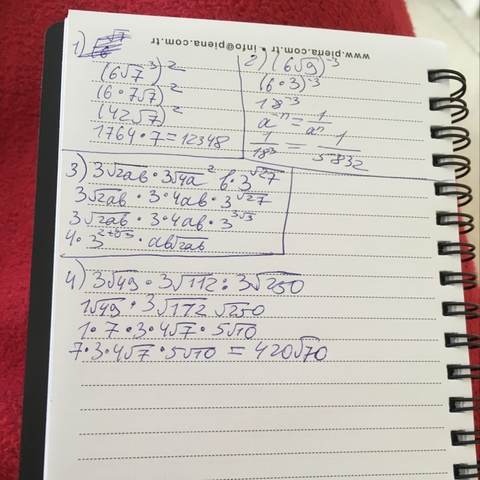 www.piena.com.tr • info@piena.com.tr
1)
(6√7³)²
(6·7√7)²
(42√7)²
1764·7=12348
2) (6√9)⁻³
(6·3)⁻³
18⁻³
a⁻ⁿ=1/aⁿ
1/18³ = 1/5832
3) 3√2ab·3√4a² b·3^√27
3√2ab·3·4ab·3^√27
3√2ab·3·4ab·3^3√3
4·3^2+3√3·ab√2ab
4) 3√49·3√112:3√250
1√49·3√112 √250
1·7·3·4√7·5√10
7·3·4√7·5√10=420√70